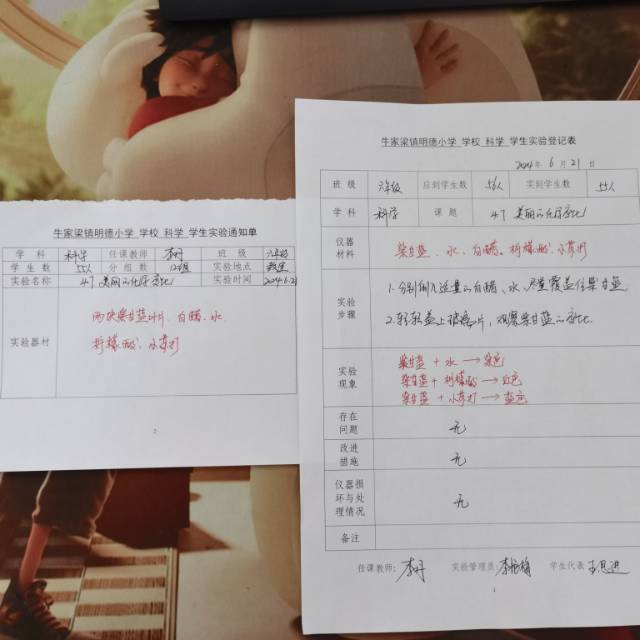 牛家梁镇明德小学 学校 科学 学生实验通知单
学 科 科学 任课教师 李子 班 级 六年级
学 生 数 55人 分 组 数 12组 实验地点 教室
实验名称 4.7 美丽的化学变化 实验时间 2024.6.21
实验器材
两块紫甘蓝叶片、白醋、水、
柠檬酸、小苏打
2
牛家梁镇明德小学 学校 科学 学生实验登记表
2024年 6 月 21 日
班 级 六年级 应到学生数 56人 实到学生数 55人
学 科 科学 课 题 4.7 美丽的化学变化
仪器
材料
紫甘蓝、水、白醋、柠檬酸、小苏打
实验
步骤
1.分别倒入适量的白醋、水、尽量覆盖住紫甘蓝.
2.轻轻盖上玻璃片,观察紫甘蓝的变化.
实验
现象
紫甘蓝 + 水 → 紫色
紫甘蓝 + 柠檬酸 → 红色
紫甘蓝 + 小苏打 → 蓝色
存在
问题
无
改进
措施
无
仪器损
坏与处
理情况
无
备注
任课教师: 实验管理员: 学生代表
1